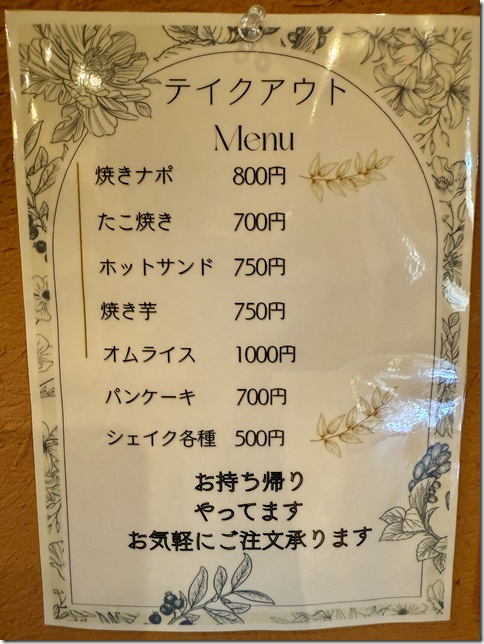 テイクアウト
Menu
焼きナポ 800円
たこ焼き 700円
ホットサンド 750円
焼き芋 750円
オムライス 1000円
パンケーキ 700円
シェイク各種 500円
お持ち帰り
やってます
お気軽にご注文承ります